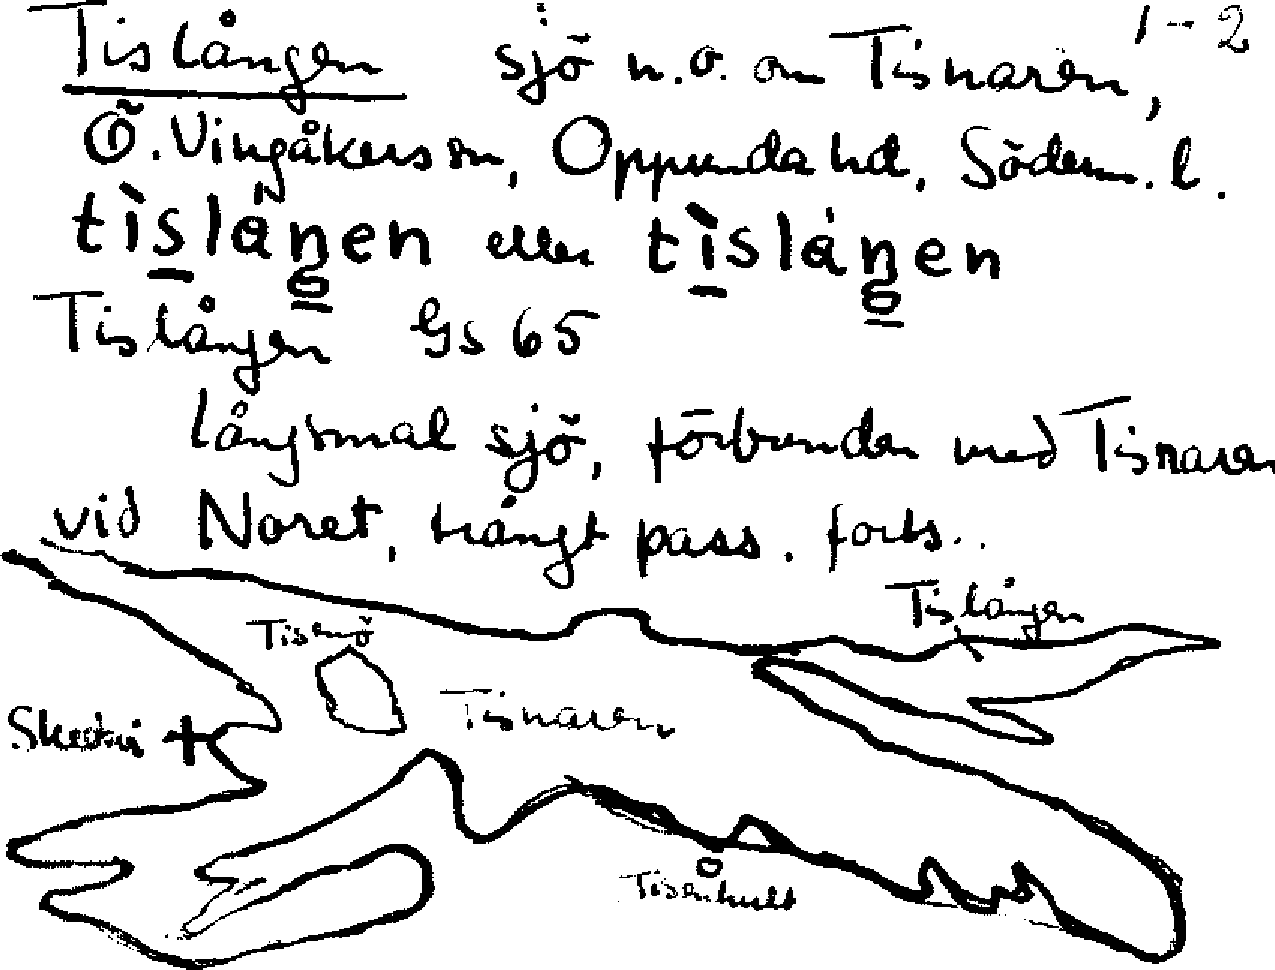 1–2
Tislången sjö n.o. om Tisnaren,
Ö. Vingåkers sn, Oppunda hd, Söderm. l.
tìslåŋen eller tìslåŋen
Tislången Gs 65
långsmal sjö, förbunden med Tisnaren
vid Noret, trångt pass. forts..
Tislången
Tisenö
Tisnaren
Tisenhult